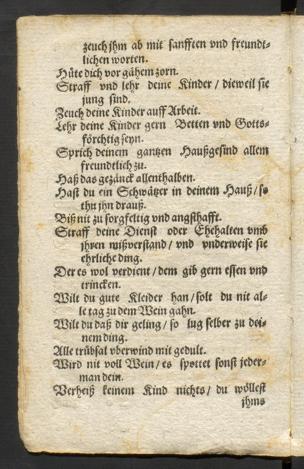 zeuch jhm ab mit sanfften vnd freundt-
lichen worten.
Hüte dich vor gähem zorn.
Straff vnd lehr deine Kinder / dieweil sie
jung sind.
Zeuch deine Kinder auff Arbeit.
Lehr deine Kinder gern Betten vnd Gotts-
förchtig seyn.
Sprich deinem gantzen Haußgesind allem
freundtlich zu.
Haß das gezänck allenthalben.
Hast du ein Schwätzer in deinem Hauß / so
thu jhn drauß.
Biß nit zu sorgfeltig vnd angsthafft.
Straff deine Dienst oder Ehehalten vmb
jhren mißverstand / vnd vnderweise sie
ehrliche ding.
Der es wol verdient / dem gib gern essen vnd
trincken.
Wilt du gute Kleider han / solt du nit al-
le tag zu dem Wein gahn.
Wilt du daß dir geling / so lug selber zu dei-
nem ding.
Alle trübsal vberwind mit gedult.
Wird nit voll Wein / es spottet sonst jeder-
man dein.
Verheiß keinem Kind nichts / du wöllest
jhms